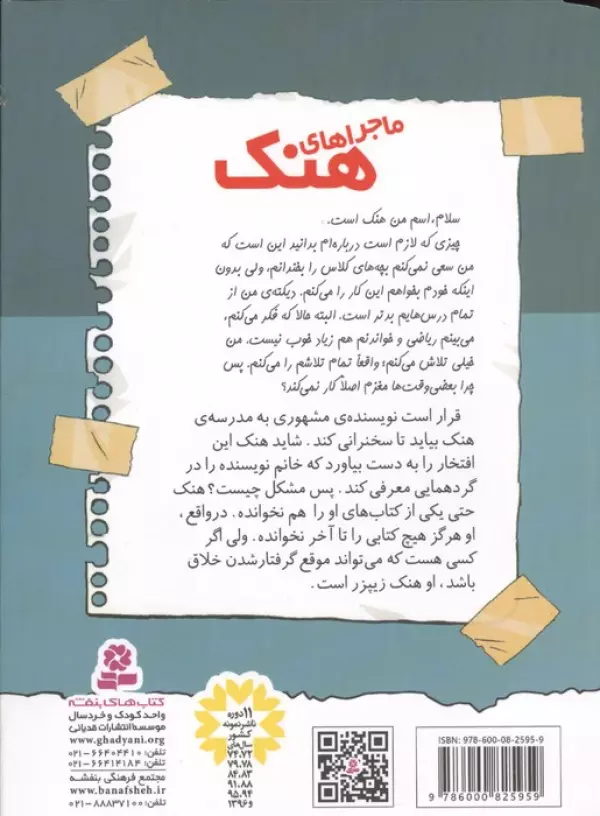 ماجراهای
هنک
سلام، اسم من هنک است.
چیزی که لازم است درباره‌ام بدانید این است که
من سعی نمی‌کنم بچه‌های کلاس را بخندانم، ولی بدون
اینکه خودم بخواهم این کار را می‌کنم. دیکته‌ی من از
تمام درس‌هایم بدتر است. البته حالا که فکر می‌کنم،
می‌بینم ریاضی و خواندنم هم زیاد خوب نیست. من
خیلی تلاش می‌کنم؛ واقعاً تمام تلاشم را می‌کنم. پس
چرا بعضی‌وقت‌ها مغزم اصلاً کار نمی‌کند؟
قرار است نویسنده‌ی مشهوری به مدرسه‌ی
هنک بیاید تا سخنرانی کند. شاید هنک این
افتخار را به دست بیاورد که خانم نویسنده را در
گردهمایی معرفی کند. پس مشکل چیست؟ هنک
حتی یکی از کتاب‌های او را هم نخوانده. درواقع،
او هرگز هیچ کتابی را تا آخر نخوانده. ولی اگر
کسی هست که می‌تواند موقع گرفتارشدن خلاق
باشد، او هنک زیپزر است.
کتاب‌های بنفشه
واحد کودک و خردسال
موسسه انتشارات قدیانی
www.ghadyani.org
تلفن: ۶۶۴۰۴۴۱۰-۰۲۱
تلفن: ۶۶۴۱۴۱۸۴-۰۲۱
مجتمع فرهنگی بنفشه
www.banafsheh.ir
تلفن: ۸۸۸۳۷۱۰۰-۰۲۱
۱۱ دوره
ناشر نمونه
کشور
سال‌های
۷۴.۷۲
۷۹.۷۸
۸۴.۸۳
۹۱.۸۸
۹۵.۹۴
و ۱۳۹۶
ISBN: 978-600-08-2595-9
9 786000 825959